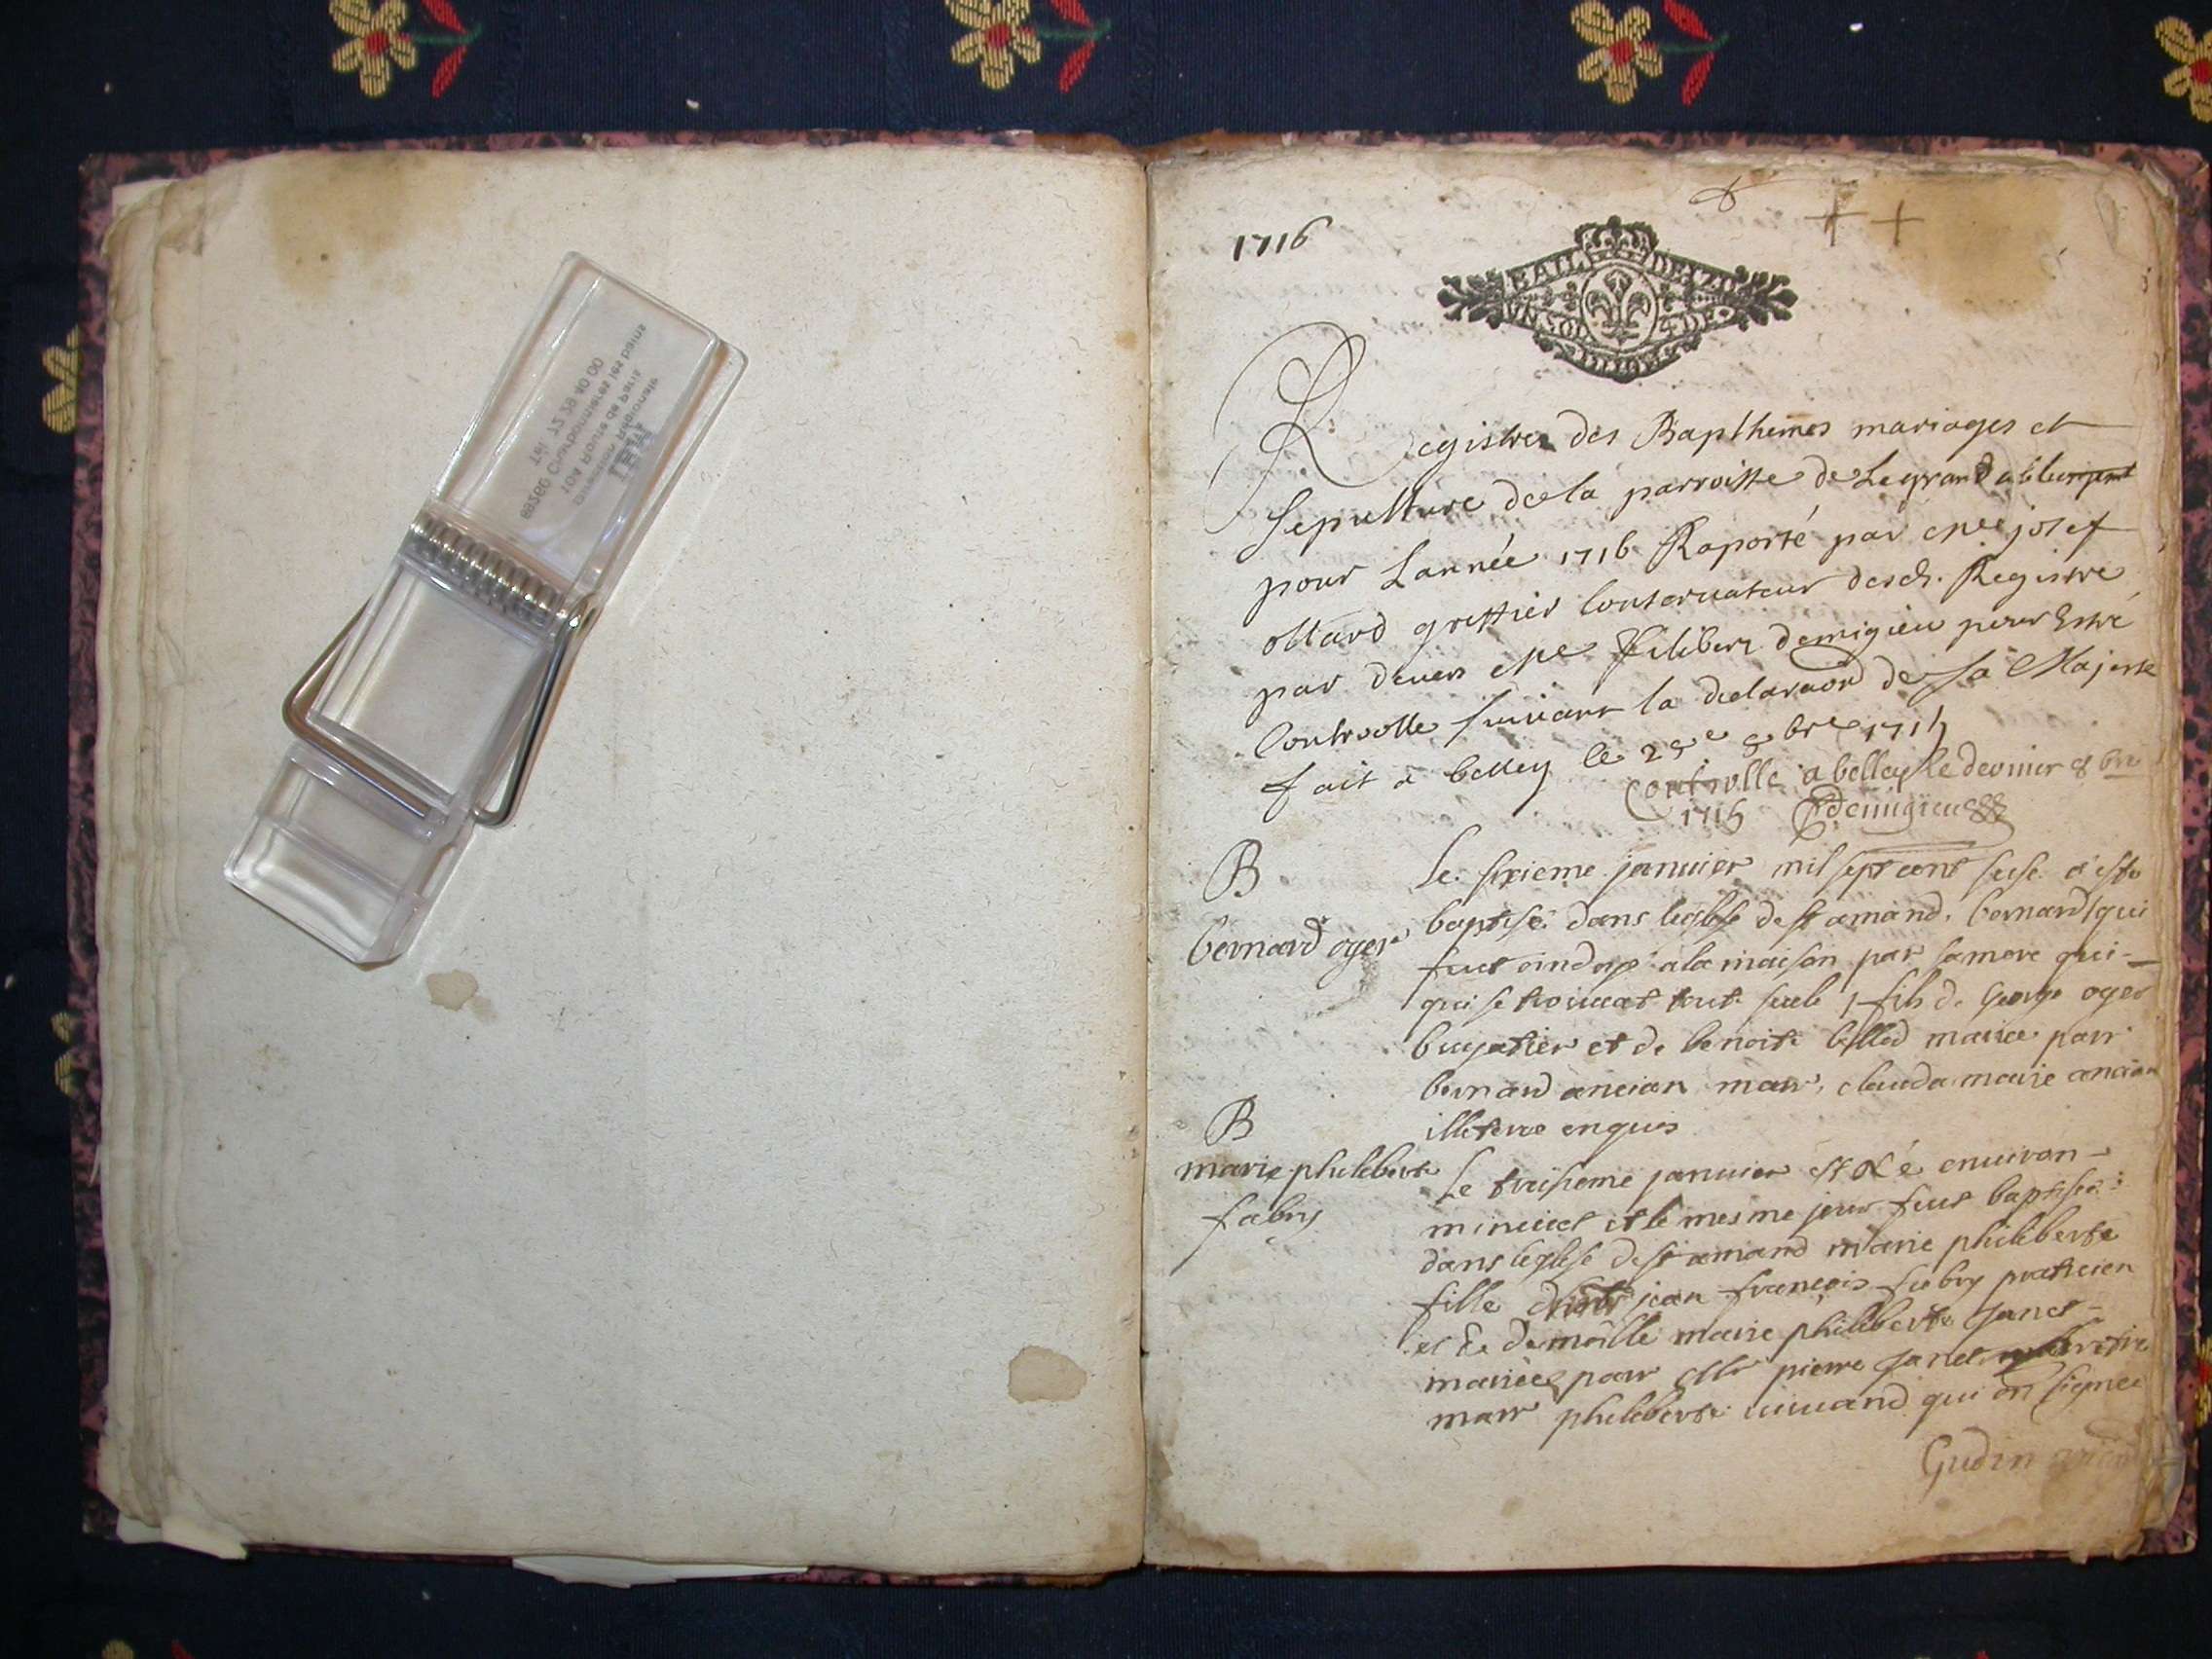 1716
BAIL DEIZIE
VN SOL 4 DE
Registre des Bapthemes mariages et
sepulture de la parroisse de Legrand abbergement
pour Lannée 1716 Raporté par Me josef
ottard greffier Conservateur desd. Registre
par devers Me filibert demigieu pour Estre
Controolle suivant la declaraon de sa Majeste
fait a belley le 28e 8bre 1715
Controlle a belley le dernier 8 bre
1715 Demigieu
B
bernard oger
Le sixieme januier mil sept cent sese a esté
baptisé dans leglise de st amand, bernard (qui
fut ondoye a la maison par sa mere qui
qui se trouuat toute seule) fils de George oger
bugatier et de benoite billod mariee parr
bernard ancian marr, clauda marie ancian
illeteree enquis
B
marie philiberte
fabry
Le troisieme januier est né enuiron
minuict et le mesme jour fut baptisée
dans leglise de st amand marie philiberte
fille jean françois fabry praticien
et de demoille marie philiberte Janet
mariée parr Mr pierre Janet
marr philiberte uiuand qui on signee
Gudin
TEHA
Direction Régionale
104 Route de Paris
69260 Charbonnières les bains
Tél. 72 38 40 00